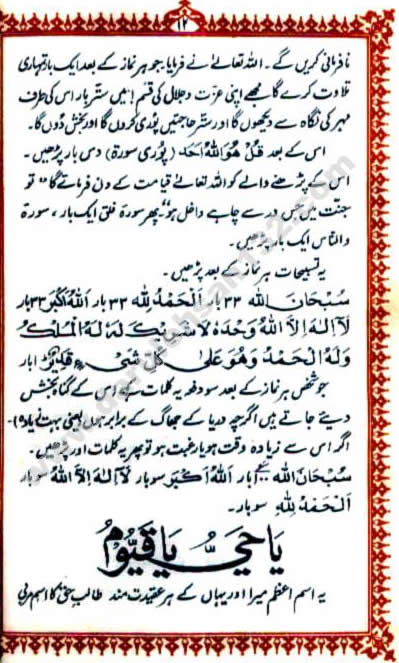 ۱۲
نافرمانی کریں گے۔ اللہ تعالیٰ نے فرمایا، جو ہر نماز کے بعد ایک بار تمہاری
تلاوت کرے گا مجھے اپنی عزت و جلال کی قسم! میں ستّر بار اس کی طرف
مہر کی نگاہ سے دیکھوں گا اور ستّر حاجتیں پوری کروں گا اور بخش دوں گا۔
اس کے بعد قُلْ ھُوَ اللّٰهُ اَحَدٌ (پوری سورۃ) دس بار پڑھیں۔
اس کے پڑھنے والے کو اللہ تعالیٰ قیامت کے دن فرمائے گا "تو
جنت میں جس در سے چاہے داخل ہو" پھر سورۃ فلق ایک بار، سورۃ
والناس ایک بار پڑھیں۔
یہ تسبیحات ہر نماز کے بعد پڑھیں۔
سُبْحَانَ اللّٰه ۳۳ بار اَلْحَمْدُ لِلّٰه ۳۳ بار اَللّٰهُ اَكْبَرُ ۳۳ بار
لَآ اِلٰهَ اِلَّا اللّٰهُ وَحْدَهٗ لَا شَرِيْكَ لَهٗ لَهُ الْمُلْكُ
وَلَهُ الْحَمْدُ وَهُوَ عَلٰی كُلِّ شَیْءٍ قَدِيْرٌ ۱ بار
جو شخص ہر نماز کے بعد سو دفعہ یہ کلمات کہے اس کے گناہ بخش
دیئے جاتے ہیں اگرچہ دریا کے جھاگ کے برابر ہوں یعنی بہت زیادہ۔
اگر اس سے زیادہ وقت ہو یا رغبت ہو تو پھر یہ کلمات اور پڑھیں۔
سُبْحَانَ اللّٰه ۱۰۰ بار اَللّٰهُ اَكْبَر سو بار لَآ اِلٰهَ اِلَّا اللّٰهُ سو بار
اَلْحَمْدُ لِلّٰهِ سو بار۔
يَا حَيُّ يَا قَيُّوْمُ
یہ اسم اعظم میرا اور یہاں کے ہر عقیدت مند طالبِ حق کا اسم مربی